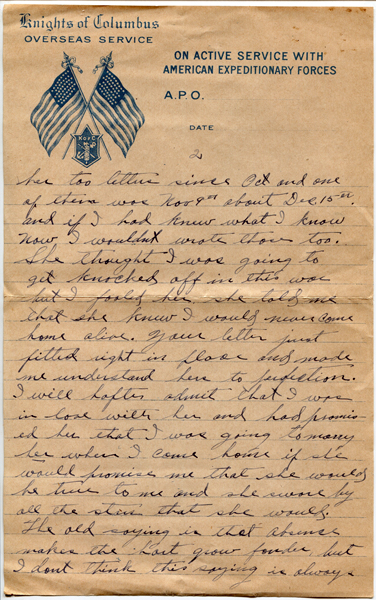 Knights of Columbus
OVERSEAS SERVICE
ON ACTIVE SERVICE WITH
AMERICAN EXPEDITIONARY FORCES
A.P.O.
DATE
K of C
2
her too letters since Oct and one
of them was Nov 9st about Dec 15st.
and if I had knew what I know
now I wouldnt wrote those too.
She thought I was going to
get knocked off in this war
but I fooled her, she told me
that she knew I would never come
home alive. Your letter just
fitted right in place and made
me understand her to perfection.
I will hafter admit that I was
in love with her and had promis-
ed her that I was going to marry
her when I come home if she
would promise me that she would
be true to me and she swore by
all the stars that she would.
The old saying is that absense
makes the hart grow fonder, but
I dont think this saying is always